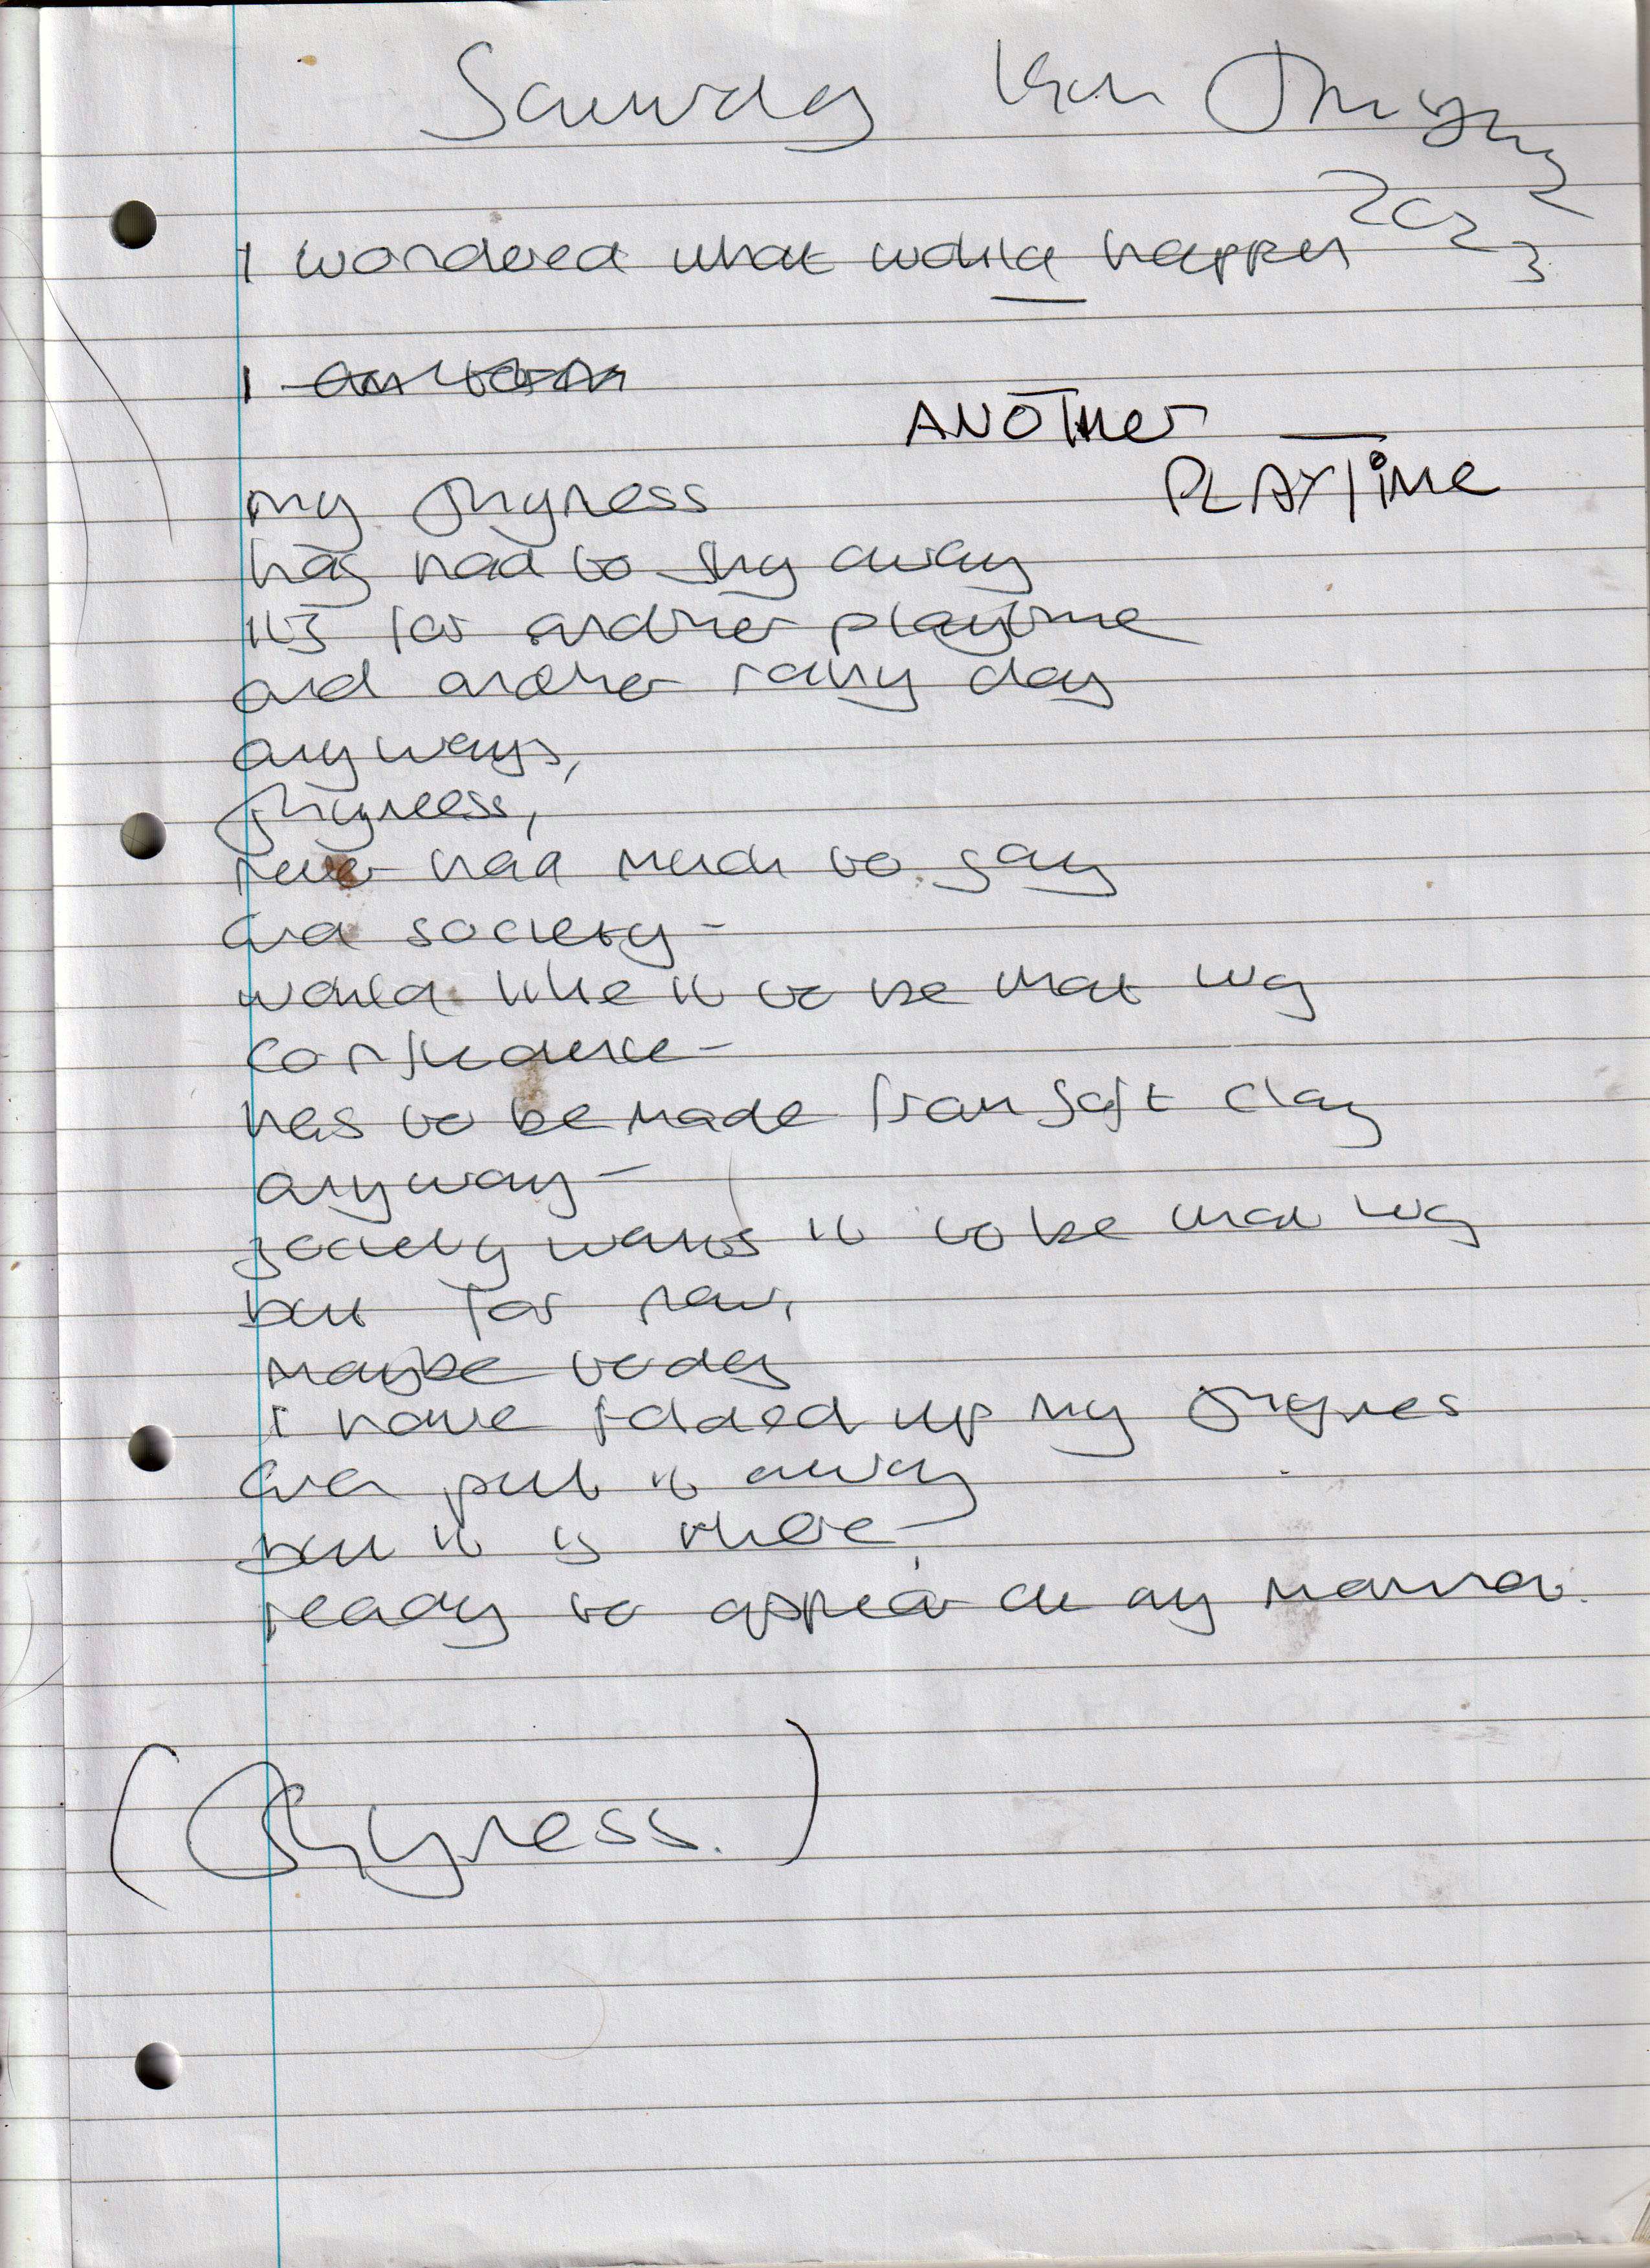 Saturday 14th January
2023
I wondered what would happen
I
ANOTHER
PLAYTIME
my shyness
has had to shy away
its for another playtime
and another rainy day
anyways,
shyness,
never had much to say
and society -
would like it to be that way
confidence -
has to be made from soft clay
anyway -
society wants it to be that way
but for now,
maybe today
i have folded up my shyness
and put it away
but it is there -
ready to appear at any moment.
(Shyness.)